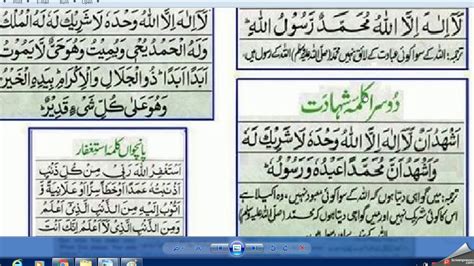 لَآ اِلٰهَ اِلَّا اللّٰهُ مُحَمَّدٌ رَّسُوْلُ اللّٰهِ ؕ
ترجمہ: اللہ کے سوا کوئی عبادت کے لائق نہیں محمد (صلی اللہ علیہ وسلم) اللہ کے رسول ہیں
دوسرا کلمہ شہادت
اَشْهَدُ اَنْ لَّآ اِلٰهَ اِلَّا اللّٰهُ وَحْدَهٗ لَا شَرِيْكَ لَهٗ
وَاَشْهَدُ اَنَّ مُحَمَّدًا عَبْدُهٗ وَرَسُوْلُهٗ ؕ
ترجمہ: میں گواہی دیتا ہوں کہ اللہ کے سوا کوئی معبود نہیں، وہ اکیلا ہے
اس کا کوئی شریک نہیں اور میں گواہی دیتا ہوں کہ محمد (صلی اللہ علیہ وسلم)
لَآ اِلٰهَ اِلَّا اللّٰهُ وَحْدَهٗ لَا شَرِيْكَ لَهٗ لَهُ الْمُلْكُ
وَلَهُ الْحَمْدُ يُحْيٖ وَيُمِيْتُ وَهُوَ حَىٌّ لَّا يَمُوْتُ
اَبَدًا اَبَدًا ؕ ذُو الْجَلَالِ وَالْاِكْرَامِ ؕ بِيَدِهِ الْخَيْرُ
وَهُوَ عَلٰى كُلِّ شَىْءٍ قَدِيْرٌ
پانچواں کلمہ استغفار
اَسْتَغْفِرُ اللّٰهَ رَبِّىْ مِنْ كُلِّ ذَنْبٍ
اَذْنَبْتُهٗ عَمَدًا اَوْ خَطَأً سِرًّا اَوْ عَلَانِيَةً وَّ
اَتُوْبُ اِلَيْهِ مِنَ الذَّنْبِ الَّذِىْٓ اَعْلَمُ
وَمِنَ الذَّنْبِ الَّذِىْ لَآ اَعْلَمُ اِنَّكَ اَنْتَ